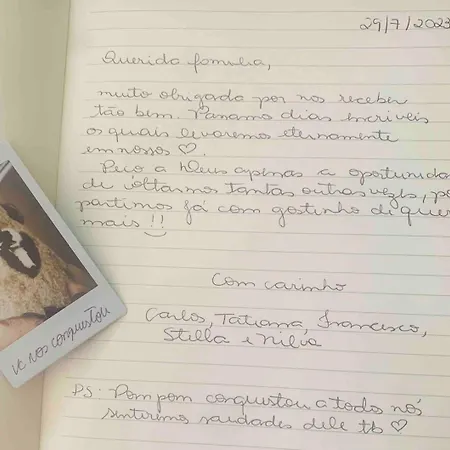 29/7/2023
Querida família,
muito obrigado por nos receber
tão bem. Passamos dias incríveis
os quais levaremos eternamente
em nossos ♡.
Peço a Deus apenas a oportunida
de voltarmos tantas outras vezes, po
partimos já com gostinho di quer
mais!!
Com carinho
Carlos, Tatiana, Francisco,
Stella e Nilva
PS: Pom pom conquistou a todo nós
sentiremos saudades dele tb ♡
vc nos conquistou